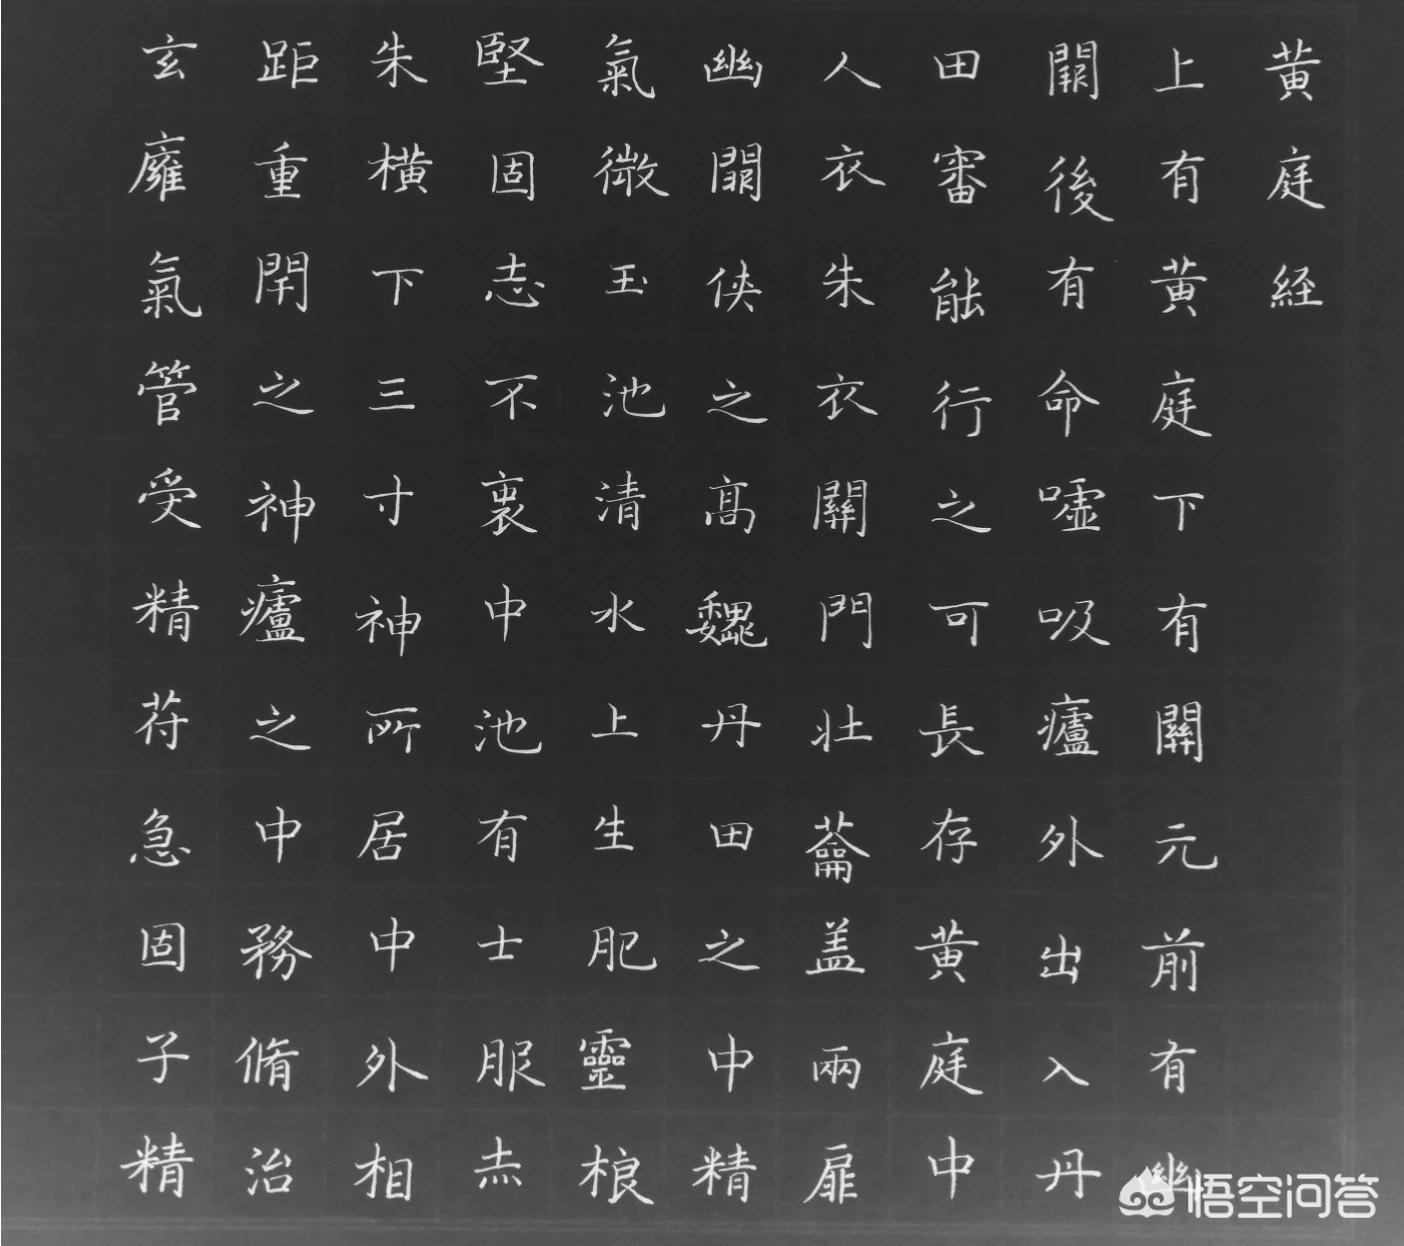 黄庭経
上有黄庭下有關元前有幽
闕後有命嘘吸廬外出入丹
田審能行之可長存黄庭中
人衣朱衣關門壮蘥盖兩扉
幽闕侠之髙巍丹田之中精
氣微玉池清水上生肥靈根
堅固志不衰中池有士服赤
朱横下三寸神所居中外相
距重閇之神廬之中務脩治
玄廱氣管受精苻急固子精
悟空问答